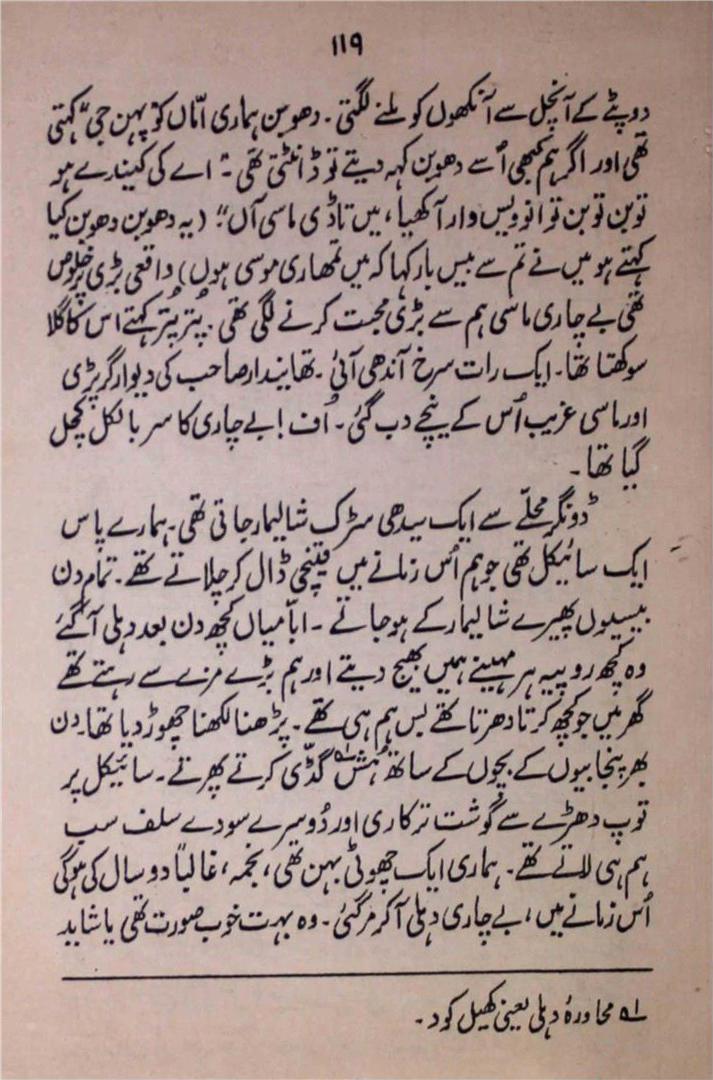 ۱۱۹
دوپٹے کے آنچل سے آنکھوں کو ملنے لگتی۔ دھوبن ہماری امّاں کو "بہن جی" کہتی
تھی اور اگر ہم کبھی اُسے دھوبن کہہ دیتے تو ڈانٹتی تھی۔ "اے کی کیندے ہو
توبن توبن توانوں ویس وار آکھیا، میں تاڈی ماسی آں"؛ (یہ دھوبن دھوبن کیا
کہتے ہو میں نے تم سے بیس بار کہا کہ میں تمھاری موسی ہوں) واقعی بڑی پُرخلوص
تھی بے چاری ماسی ہم سے بڑی محبت کرنے لگی تھی۔ پُتر پُتر کہتے اس کا گلا
سوکھتا تھا۔ ایک رات سرخ آندھی آئی۔ تھانیدار صاحب کی دیوار گر پڑی
اور ماسی غریب اُس کے نیچے دب گئی۔ اُف! بے چاری کا سر بالکل کچل
گیا تھا۔
ڈونگر محلّے سے ایک سیدھی سڑک شالیمار جاتی تھی۔ ہمارے پاس
ایک سائیکل تھی جو ہم اُس زمانے میں قینچی ڈال کر چلاتے تھے۔ تمام دن
بیسیوں پھیرے شالیمار کے ہو جاتے۔ ابّا میاں کچھ دن بعد دہلی آ گئے
وہ کچھ روپیہ ہر مہینے ہمیں بھیج دیتے اور ہم بڑے مزے سے رہتے تھے
گھر میں جو کچھ کرتا دھرتا تھے بس ہم ہی تھے۔ پڑھنا لکھنا چھوڑ دیا تھا۔ دن
بھر پنجابیوں کے بچوں کے ساتھ ہُش گدّی کرتے پھرتے۔ سائیکل پر
توپ دھڑے سے گوشت ترکاری اور دُوسرے سودے سلف سب
ہم ہی لاتے تھے۔ ہماری ایک چھوٹی بہن تھی، نجمہ، غالباً دو سال کی ہوگی
اُس زمانے میں، بے چاری دہلی آ کر مر گئی۔ وہ بہت خوب صورت تھی یا شاید
لہ محاورۂ دہلی یعنی کھیل کود۔